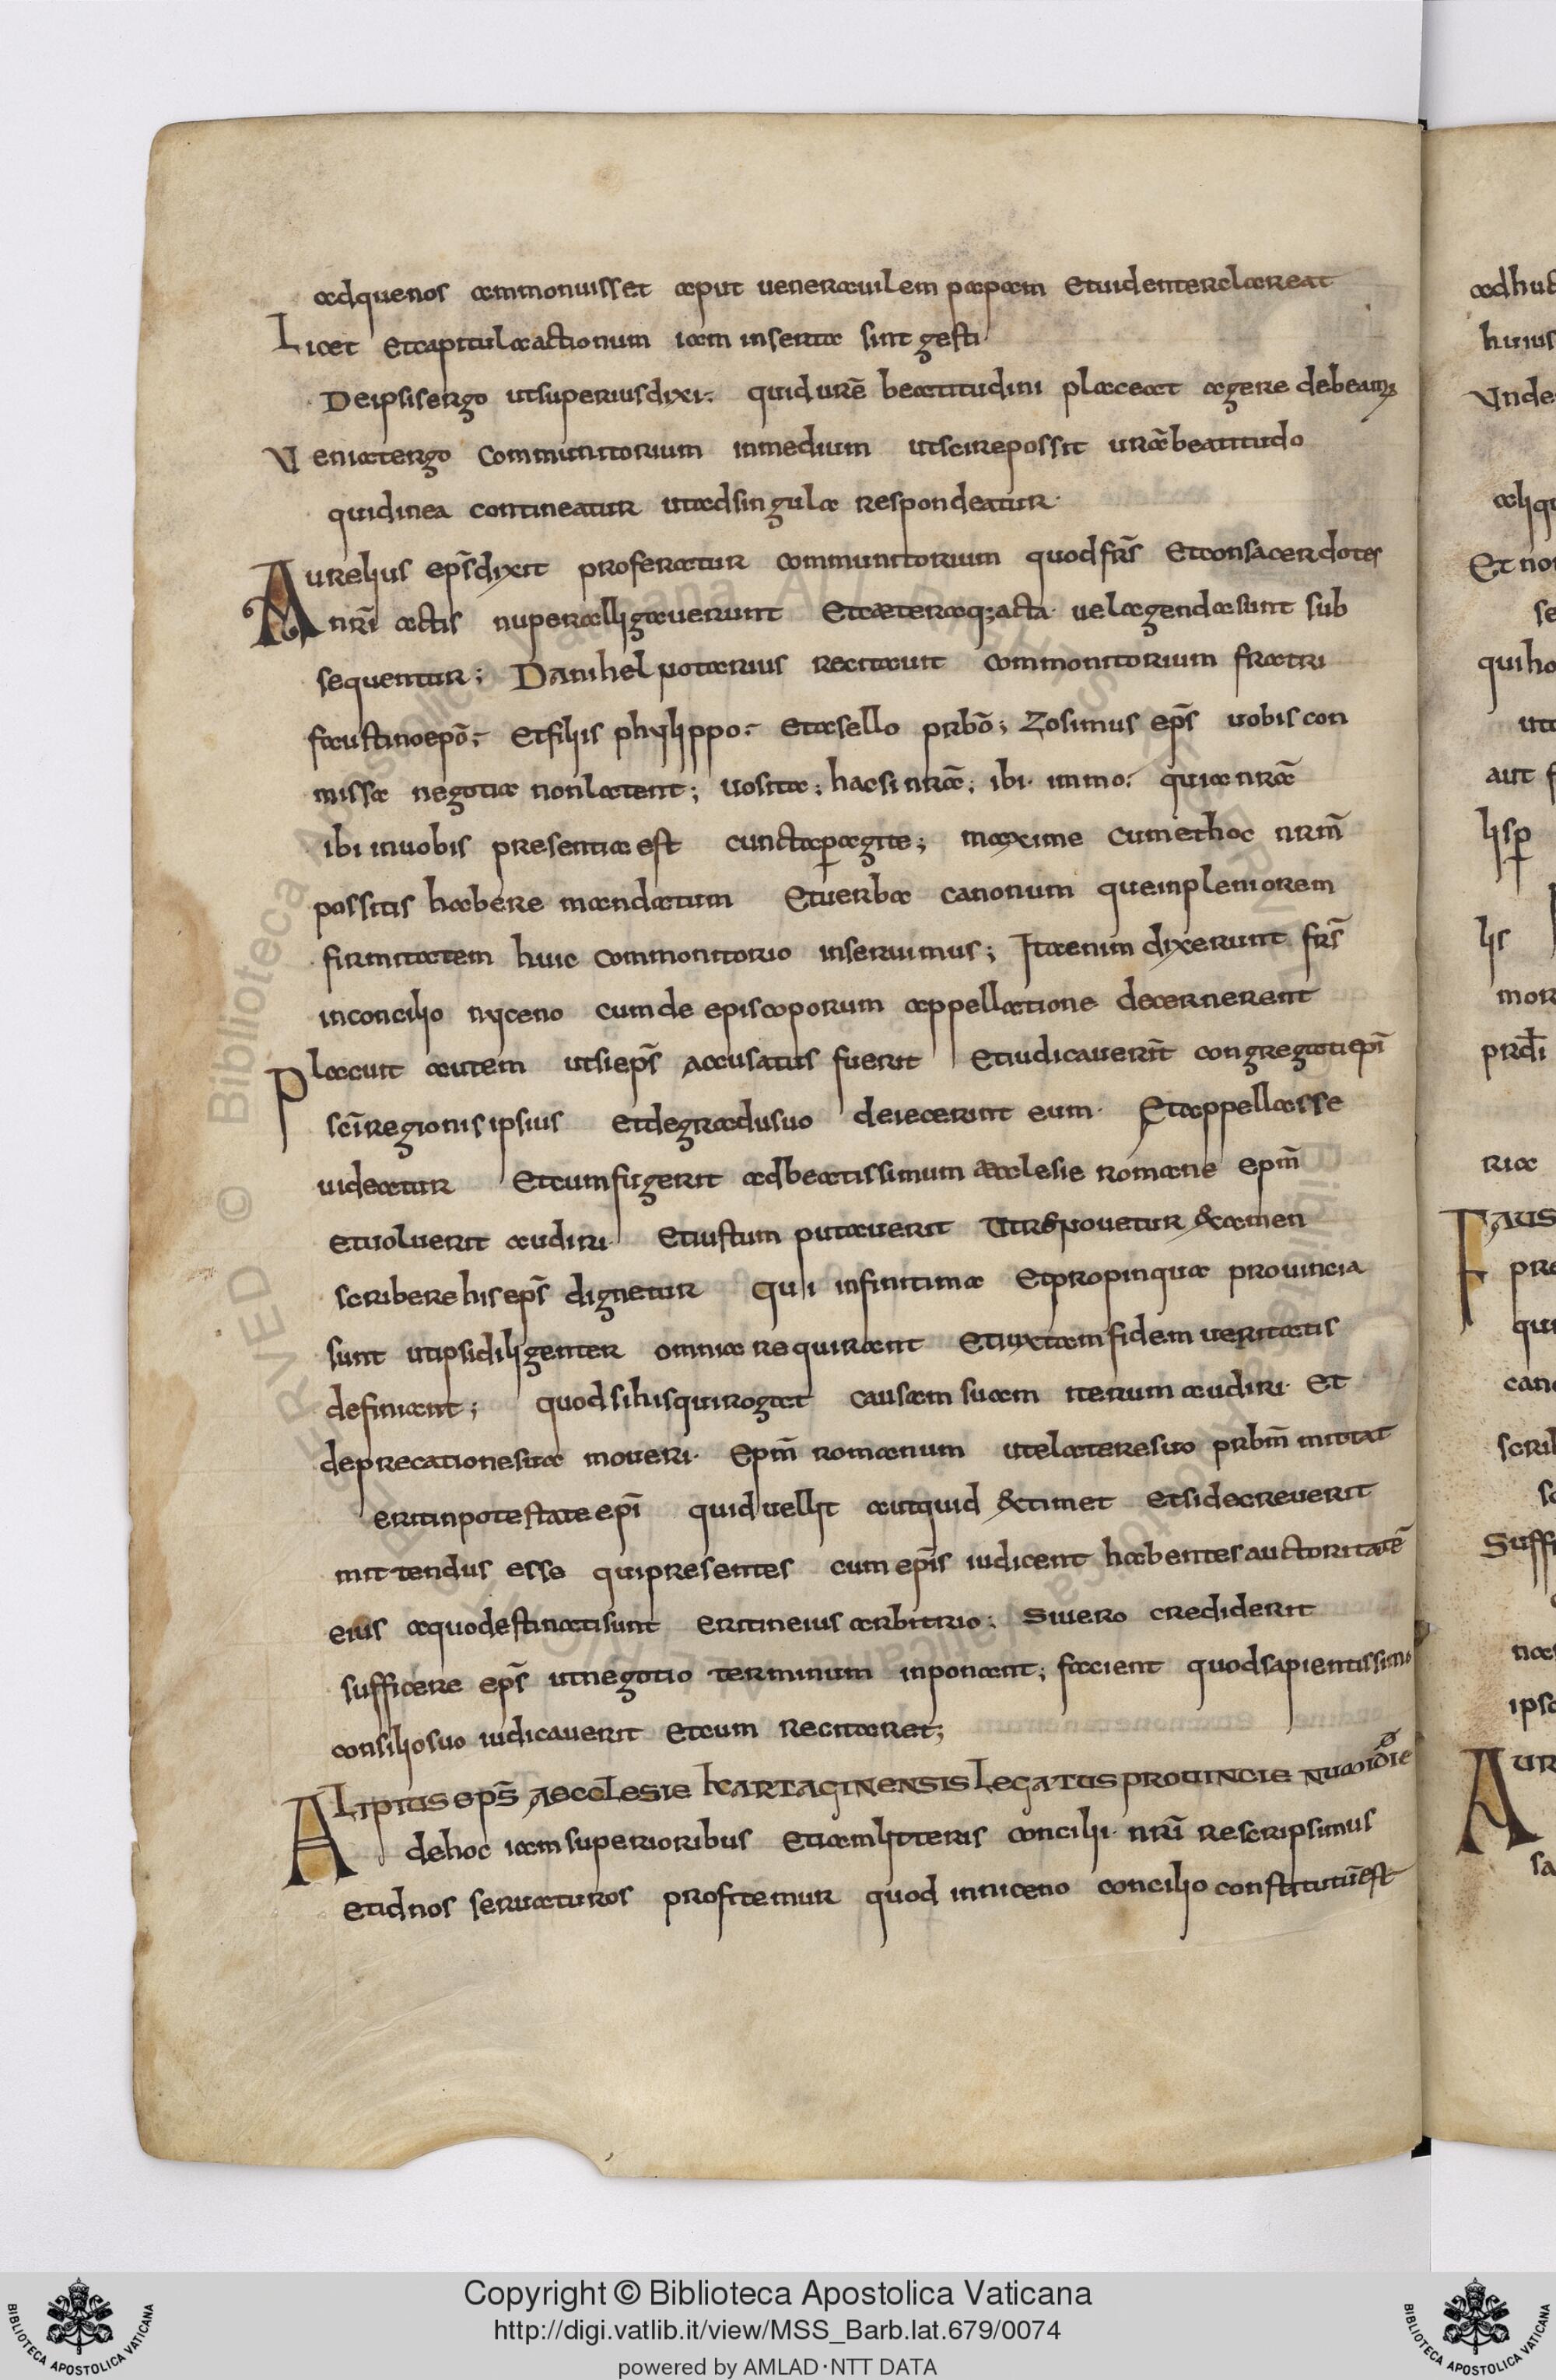 adquenos ammonuisset aput uenerauilem papam etuidenterclareat
Licet etcapitulaactionum iam inserta sint gesti
Deipsisergo utsuperiusdixi· quid urē beatitudini placeat agere debeamꝫ
Veniatergo communitorium inmedium utscirepossit urābeatitudo
quidinea contineatur utadsingula respondeatur·
Aurelius ep̄sdixit proferatur communitorium quodfrs̄ etconsacerdotes
nrī actis nuperalligauerunt etcæteraq;acta· uelagendasunt sub
sequentur; Danihel notarius recitauit commonitorium fratri
faustinoepō· etfiliis phylippo· etasello prbō; Zosimus ep̄s uobis con
missa negotia nonlatent; uosita; hacsi nrā; ibi· immo· quia nrā
ibi inuobis presentia est cunctaꝑagite; maxime cumethoc nrm̄
possitis habere mandatum etuerba canonum queinpleniorem
firmitatem huic commonitorio inseruimus; Itaenim dixerunt frs̄
inconcilio nyceno cumde episcoporum appellatione decernerent
Placuit autem utsiep̄s accusatus fuerit etiudicauerint̄ congregatiepī
scīregionisipsius etdegradusuo deiecerint eum· Etappellasse
uideatur etcumfugerit adbeatissimum aecclesie romane epm̄
etuoluerit audiri· etiustum putauerit utrenouetur examen
scriberehisep̄s dignetur qui infinitima etpropinqua prouincia
sunt utipsidiligenter omnia requirant etiuxtamfidem ueritatis
definiant; quodsihisquirogat causamsuam iterum audiri· et
deprecationesua moueri· epm̄ romanum utelateresuo prbm̄ mittat
eritinpotestateepī quiduellit autquid extimet etsidecreuerit
mittendus esse quipresentes cum epīs iudicent habentesauctoritatē
eius aquodestinatisunt eritineius arbitrio; Siuero crediderit
sufficere ep̄s utnegotio terminum inponant; facient quodsapientissimo
consiliosuo iudicauerit etcum recitaret;
Alipius ep̄s aecclesie kartaginensis legatus prouincie numidie
dehoc iamsuperioribus etiamlitteris concilii· nrī rescripsimus
etidnos seruaturos profitemur quod inniceno concilio constitutūest
adhuc
huius
Vnde
aliqu
Et non
se
quiho
uta
aut f
lisꝑ
lis
mor
prdī
ria
Faus
pre
qui
cano
scrib
Suffi
nos
ipso
Aur
sa
Copyright © Biblioteca Apostolica Vaticana
http://digi.vatlib.it/view/MSS_Barb.lat.679/0074
powered by AMLAD·NTT DATA
BIBLIOTECA APOSTOLICA VATICANA
BIBLIOTECA APOSTOLICA VATICANA